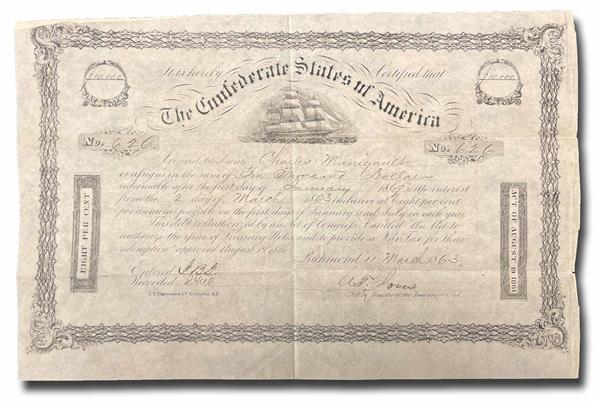 $10,000
It is hereby Certified that
$10,000
The Confederate States of America
No. 626
No. 626
are indebted unto Charles Manigault
or assigns in the sum of Ten Thousand Dollars
redeemable after the first day of January 1869 with interest
from the 2 day of March 1863 inclusive at Eight per cent
per annum payable on the first days of January and July in each year
This debt is authorized by an Act of Congress Entitled "An Act to
authorize the issue of Treasury Notes and to provide a War Tax for their
redemption" approved August 19th 1861
Richmond 11 March 1863
EIGHT PER CENT
ACT OF AUGUST 19 1861
Entered
Recorded
Register of the Treasury